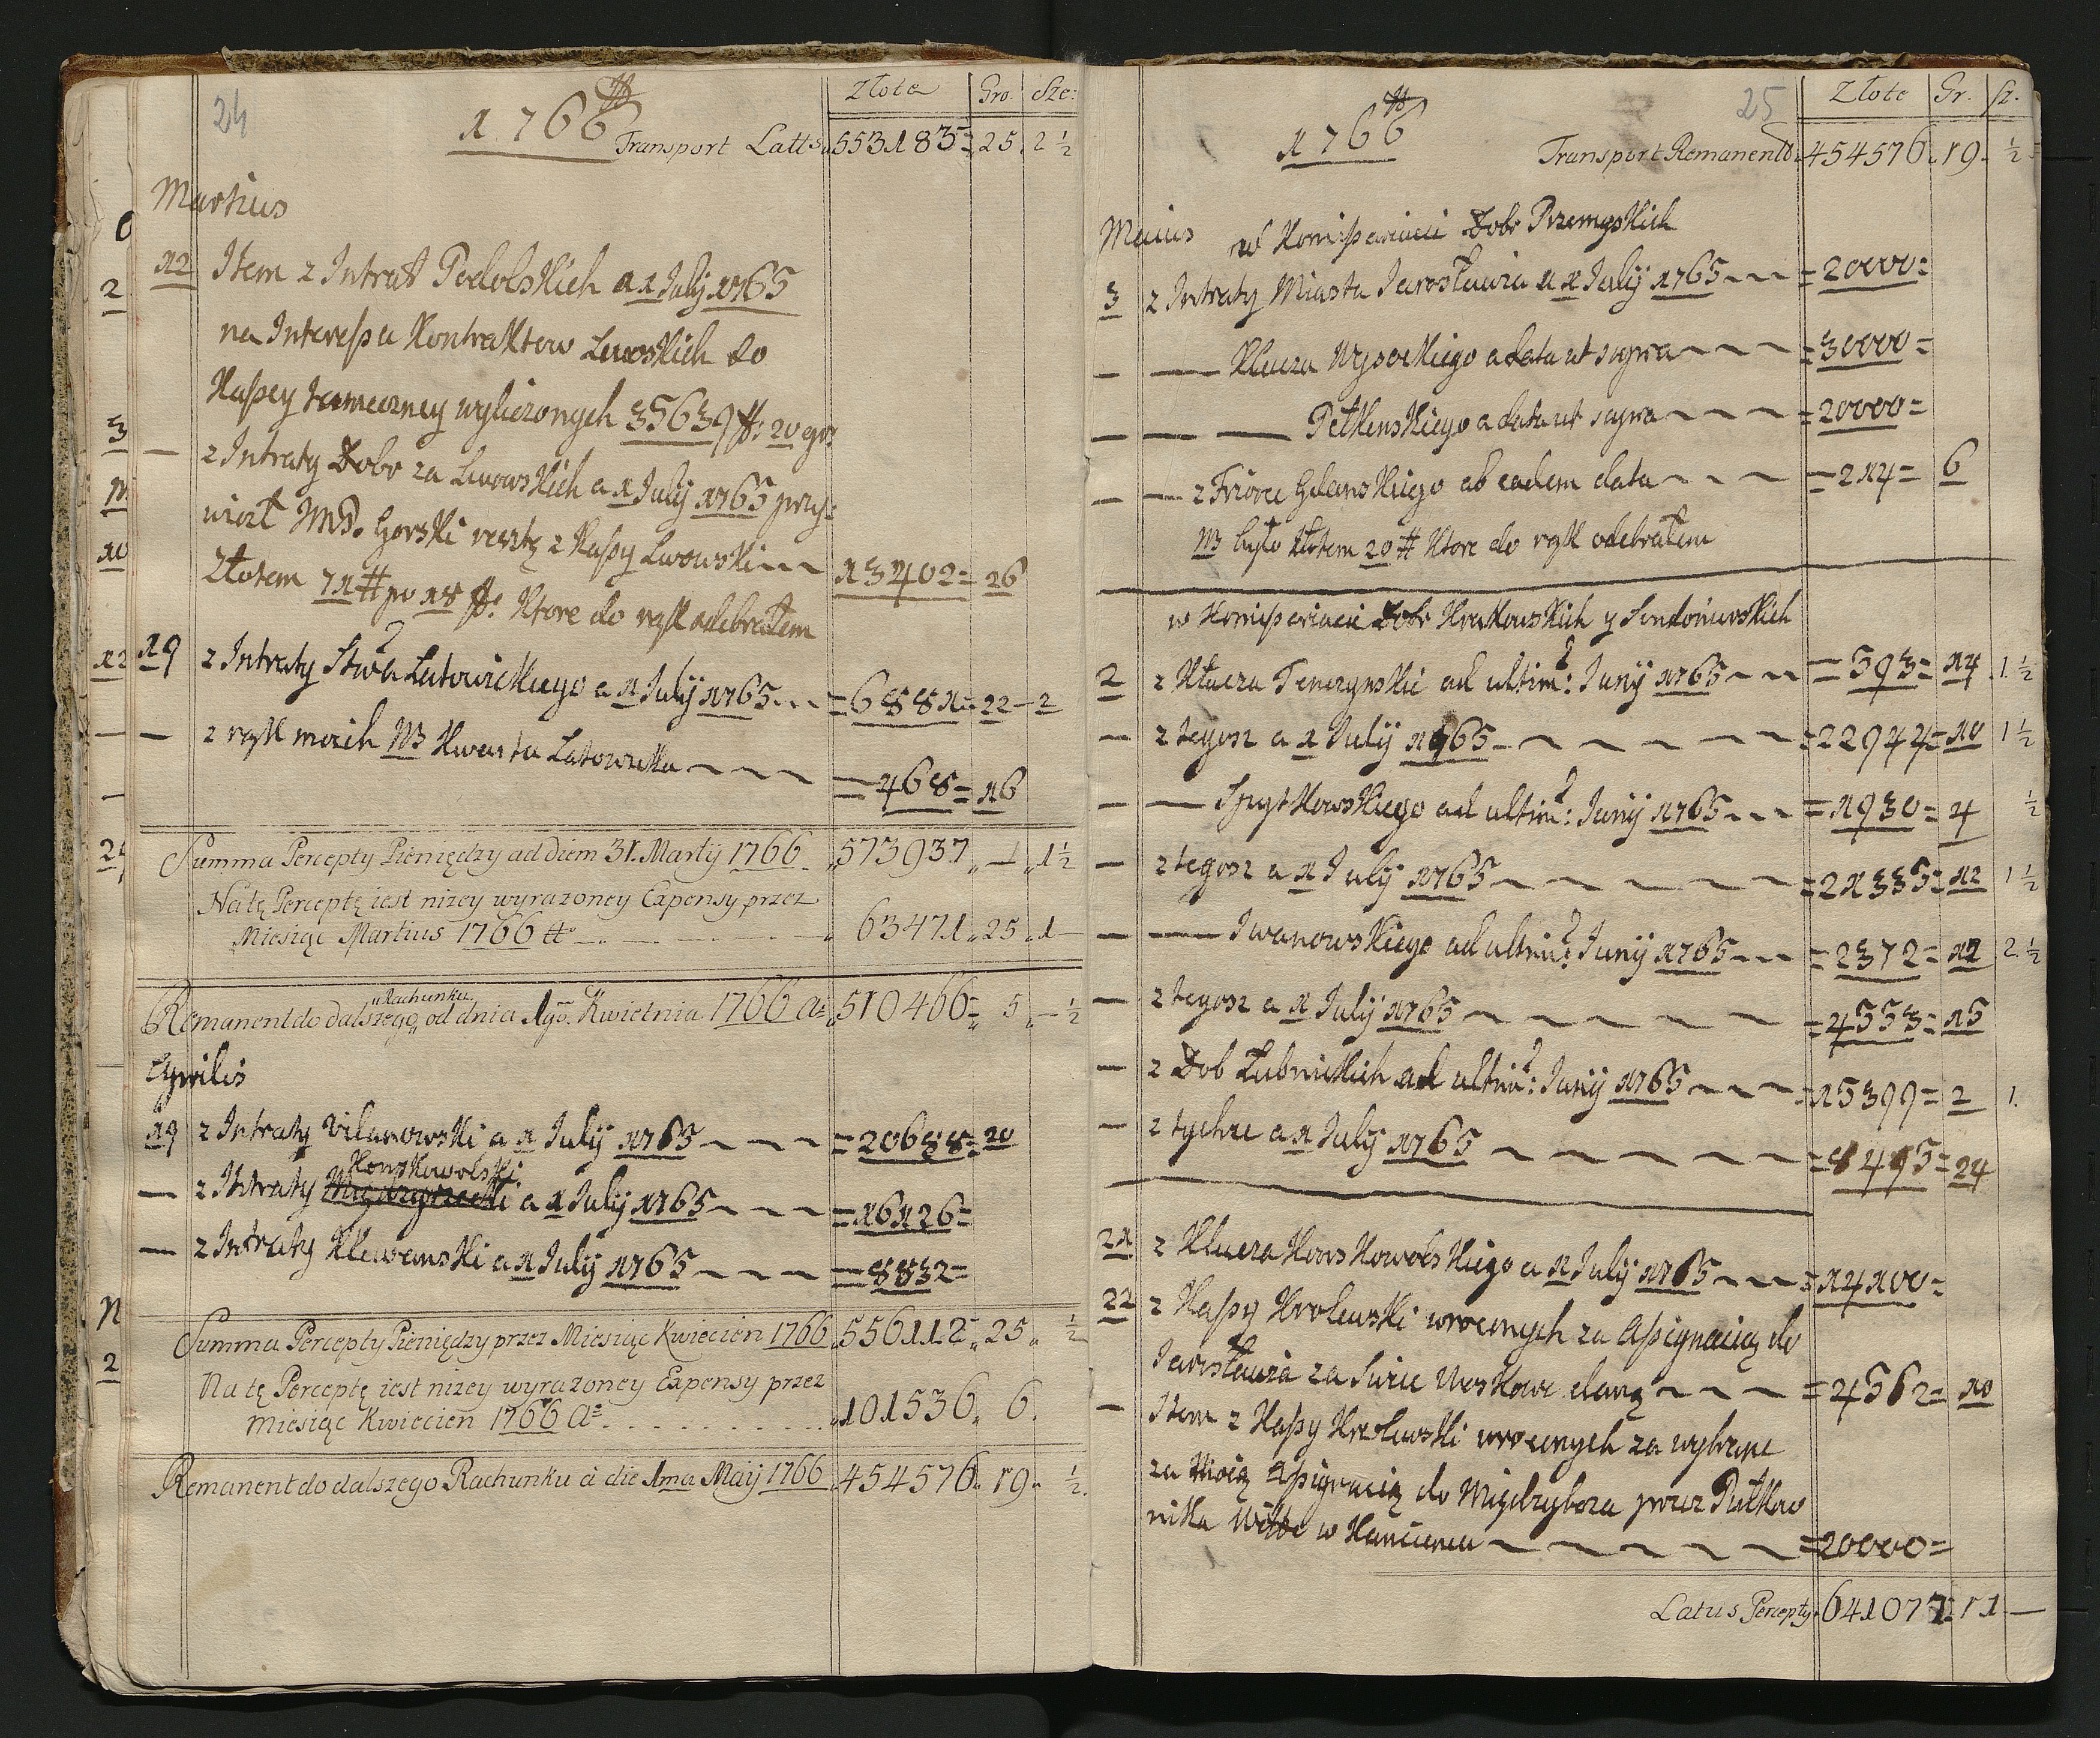 24
1766
Złote Gro. Sze:
Transport Latts 553183 25 2 ½
Martius
12 Item z Intrat Podolskich a 1 July 1765
na Interessa Kontraktow Lwoskich do
Kassey tameczney wyliczonych 35639 f: 20 gr
— z Intraty Dobr za Lwowskich a 1 July 1765 przy:
wiozł Gorski resztę z Kassy Lwowski 13402 = 26
Złotem 71 # po 18 f: Ktore do rąk odebrałem
19 z Intraty Stwa Latowickiego a 1 July 1765 = 6881 = 22 - 2
— z rąk moich Kwarta Latowicka = 468 = 16
Summa Percepty Pieniędzy ad diem 31. Martÿ 1766 573937 — 1 ½
Na tę Perceptę iest nizey wyrazoney Expensy, przez
Miesiąc Martius 1766 63471 25 1
Remanent do dalszego Rachunku od dnia 1go. Kwietnia 1766 a= 510466 = 5 — ½
Aprilis
19 z Intraty Vilanowski a 1 July 1765 = 20688 = 20
— z Intraty Konskowolski a 1 July 1765 = 16126 =
— z Intraty Klewanski a 1 July 1765 = 8832 =
Summa Percepty Pieniędzy przez Miesiąc Kwiecien 1766 556112 25 ½
Na tę Perceptę iest nizey wyrazoney Expensy przez
miesiąc Kwiecien 1766 A= 101536 6.
Remanent do dalszego Rachunku a die 1ma Maÿ 1766 454576 19 ½
25
1766
Złote Gr. sz.
Transport Remanentu 454576 19 ½
Maius w Komissariacie Dobr Przemyskich
3 z Intraty Miasta Jarosławia a 1 July 1765 = 20000 =
— — Klucza Wysockiego a data ut supra = 30000 =
— — — Pełkenskiego a data ut supra = 20000 =
— — z Gdanskiego ab eadem data = 214 = 6
było złotem 20 # Ktore do rąk odebrałem
w Komissariacie Dobr Krakowskich y Sendomirskich
2 z Klucza Tenczynskie ad ultim: Juny 1765 = 593 = 14 1 ½
— z tegosz a 1 July 1765 = 22944 = 10 1 ½
— — Spytkowskiego ad ultim: Juny 1765 = 1930 = 4 ½
— z tegosz a 1 July 1765 = 21335 = 12 1 ½
— — Iwanowskiego ad ultim: Juny 1765 = 2372 = 12 2 ½
— z tegosz a 1 July 1765 = 4553 = 15
— z Dob Łubnickich ad ultim: Juny 1765 = 15399 = 2 1.
— z tychze a 1 July 1765 = 8495 = 24
21 z Klucza Konskowolskiego a 1 July 1765 = 14100 =
22 z Kassy Krolewski wroconych za Assignacią do
Jarosławia za dang = 4562 = 10
— Item z Kassy Krolewski wroconych za wybrane
za moią Assignacią do Międzyboza przez Pułkow
nika Witte w Kamiencu = 20000 =
Latus Percepty 641077 11 —
0
2
3
11
10
12
—
—
24
11
2